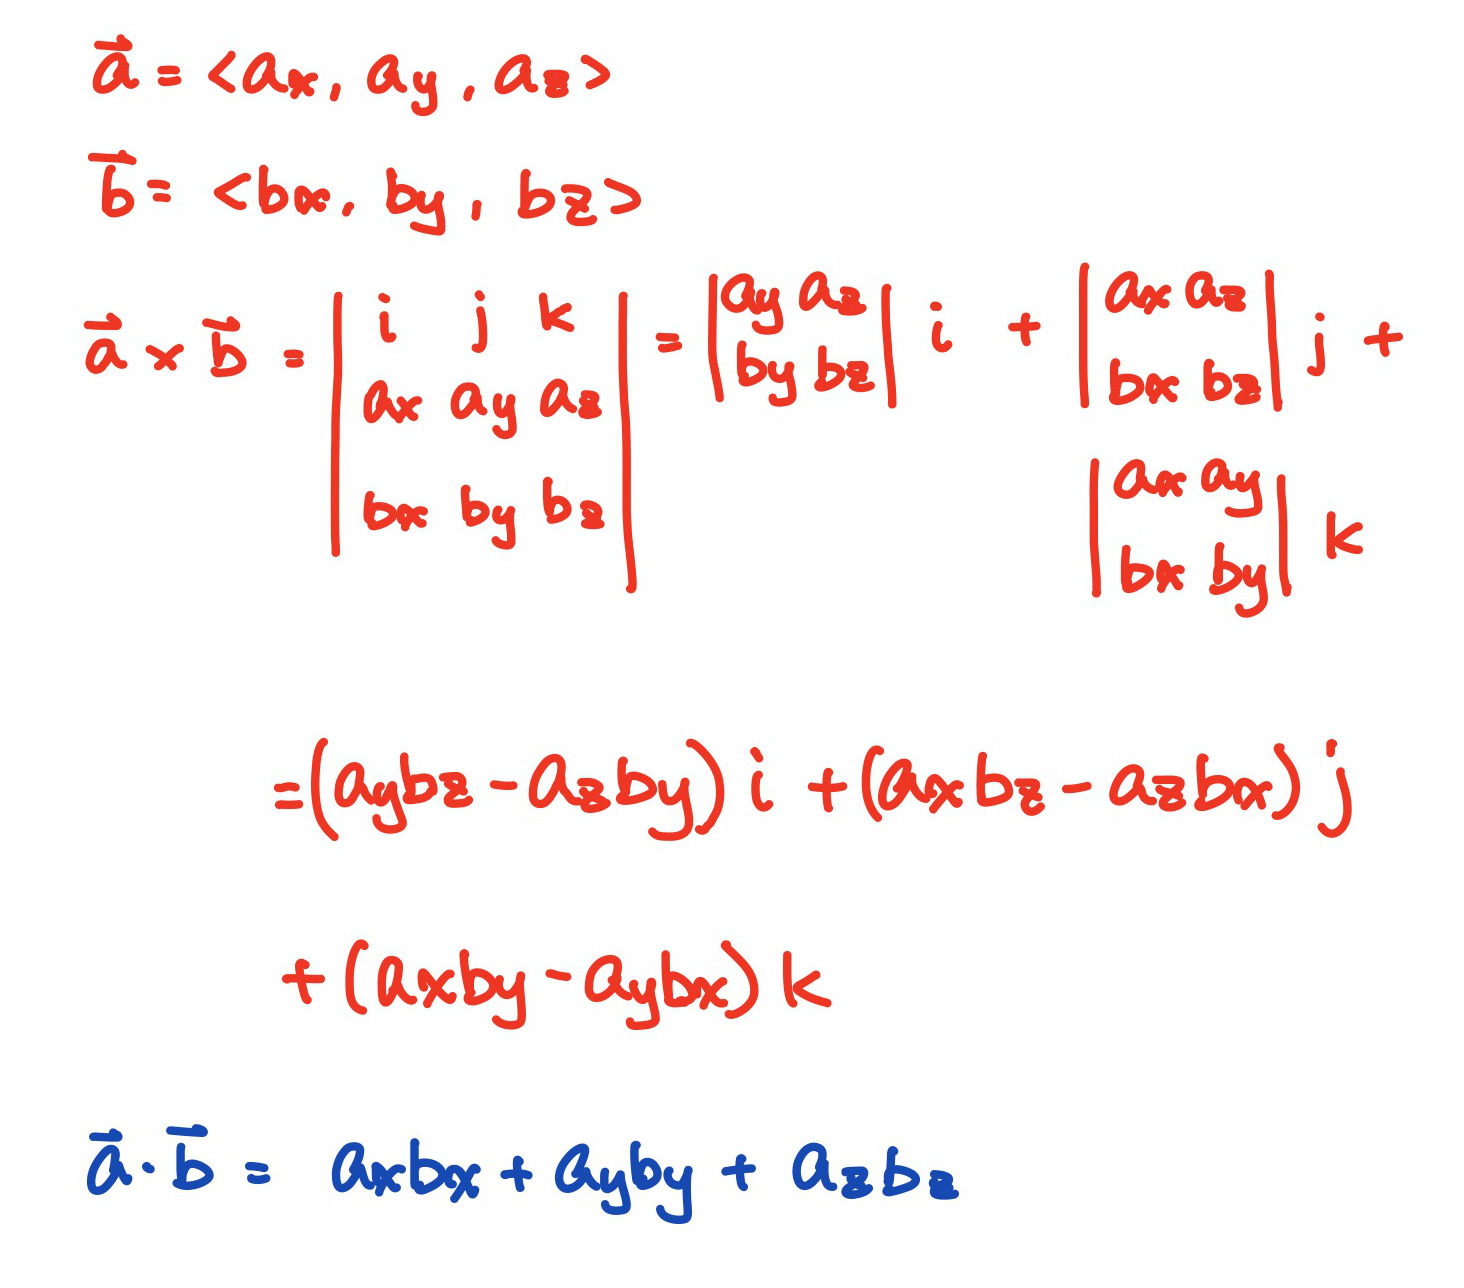 a⃗ = <ax, ay, az>
b⃗ = <bx, by, bz>
a⃗ × b⃗ = | i j k | = | ay az | i + | ax az | j +
| ax ay az | | by bz | | bx bz |
| bx by bz | | ax ay | k
| bx by |
= (aybz - azby) i + (axbz - azbx) j
+ (axby - aybx) k
a⃗ · b⃗ = axbx + ayby + azbz